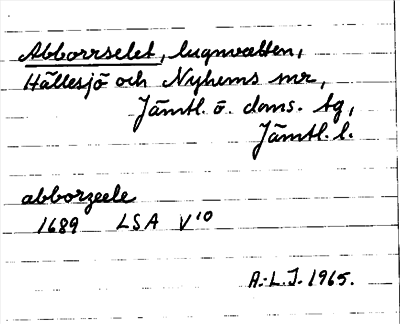 Abborrselet, lugnvatten,
Hällesjö och Nyhems snr,
Jämtl. ö. doms. tg,
Jämtl. l.
abborzeele
1689 LSA V¹⁰
A.-L.J. 1965.